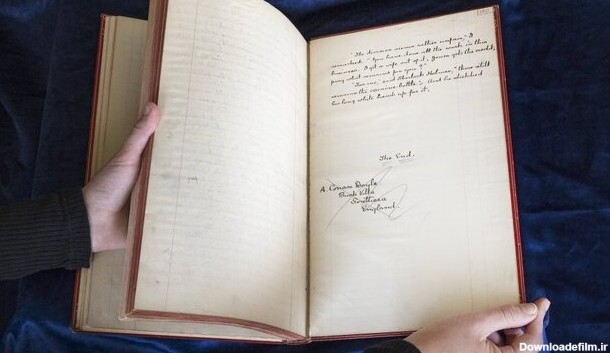 "The division seems rather unfair," I
remarked. "You have done all the work in this
business. I get a wife out of it, Jones gets the credit,
pray what remains for you?"
"For me," said Sherlock Holmes, "there still
remains the cocaine bottle." And he stretched
his long white hand up for it.
The End.
A. Conan Doyle
Bush Villa
Southsea
England.
Downloadefilm.ir